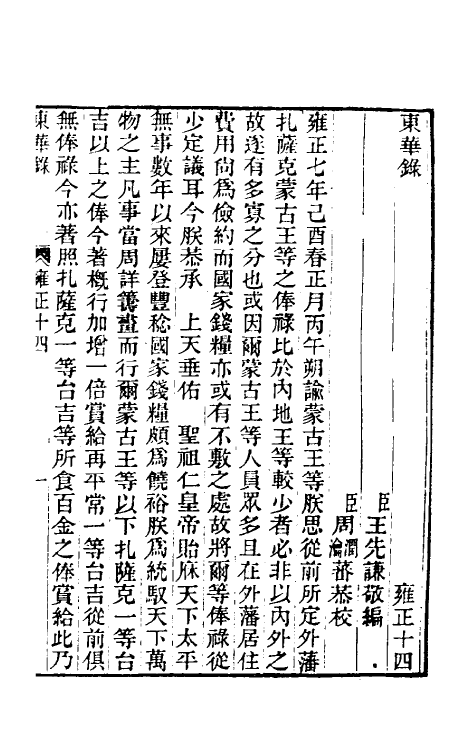 東華錄 雍正十四
臣王先謙敬編
臣周潤蕃瀹蕃恭校
雍正七年己酉春正月丙午朔諭蒙古王等朕思從前所定外藩
扎薩克蒙古王等之俸祿比於內地王等較少者必非以內外之
故遂有多寡之分也或因爾蒙古王等人員眾多且在外藩居住
費用尚為儉約而國家錢糧亦或有不敷之處故將爾等俸祿從
少定議耳今朕恭承 上天垂佑 聖祖仁皇帝貽庥天下太平
無事數年以來屢登豐稔國家錢糧頗為饒裕朕為統馭天下萬
物之主凡事當周詳籌畫而行爾蒙古王等以下扎薩克一等台
吉以上之俸今著概行加增一倍賞給再平常一等台吉從前俱
無俸祿今亦著照扎薩克一等台吉等所食百金之俸賞給此乃
東華錄 雍正十四 一